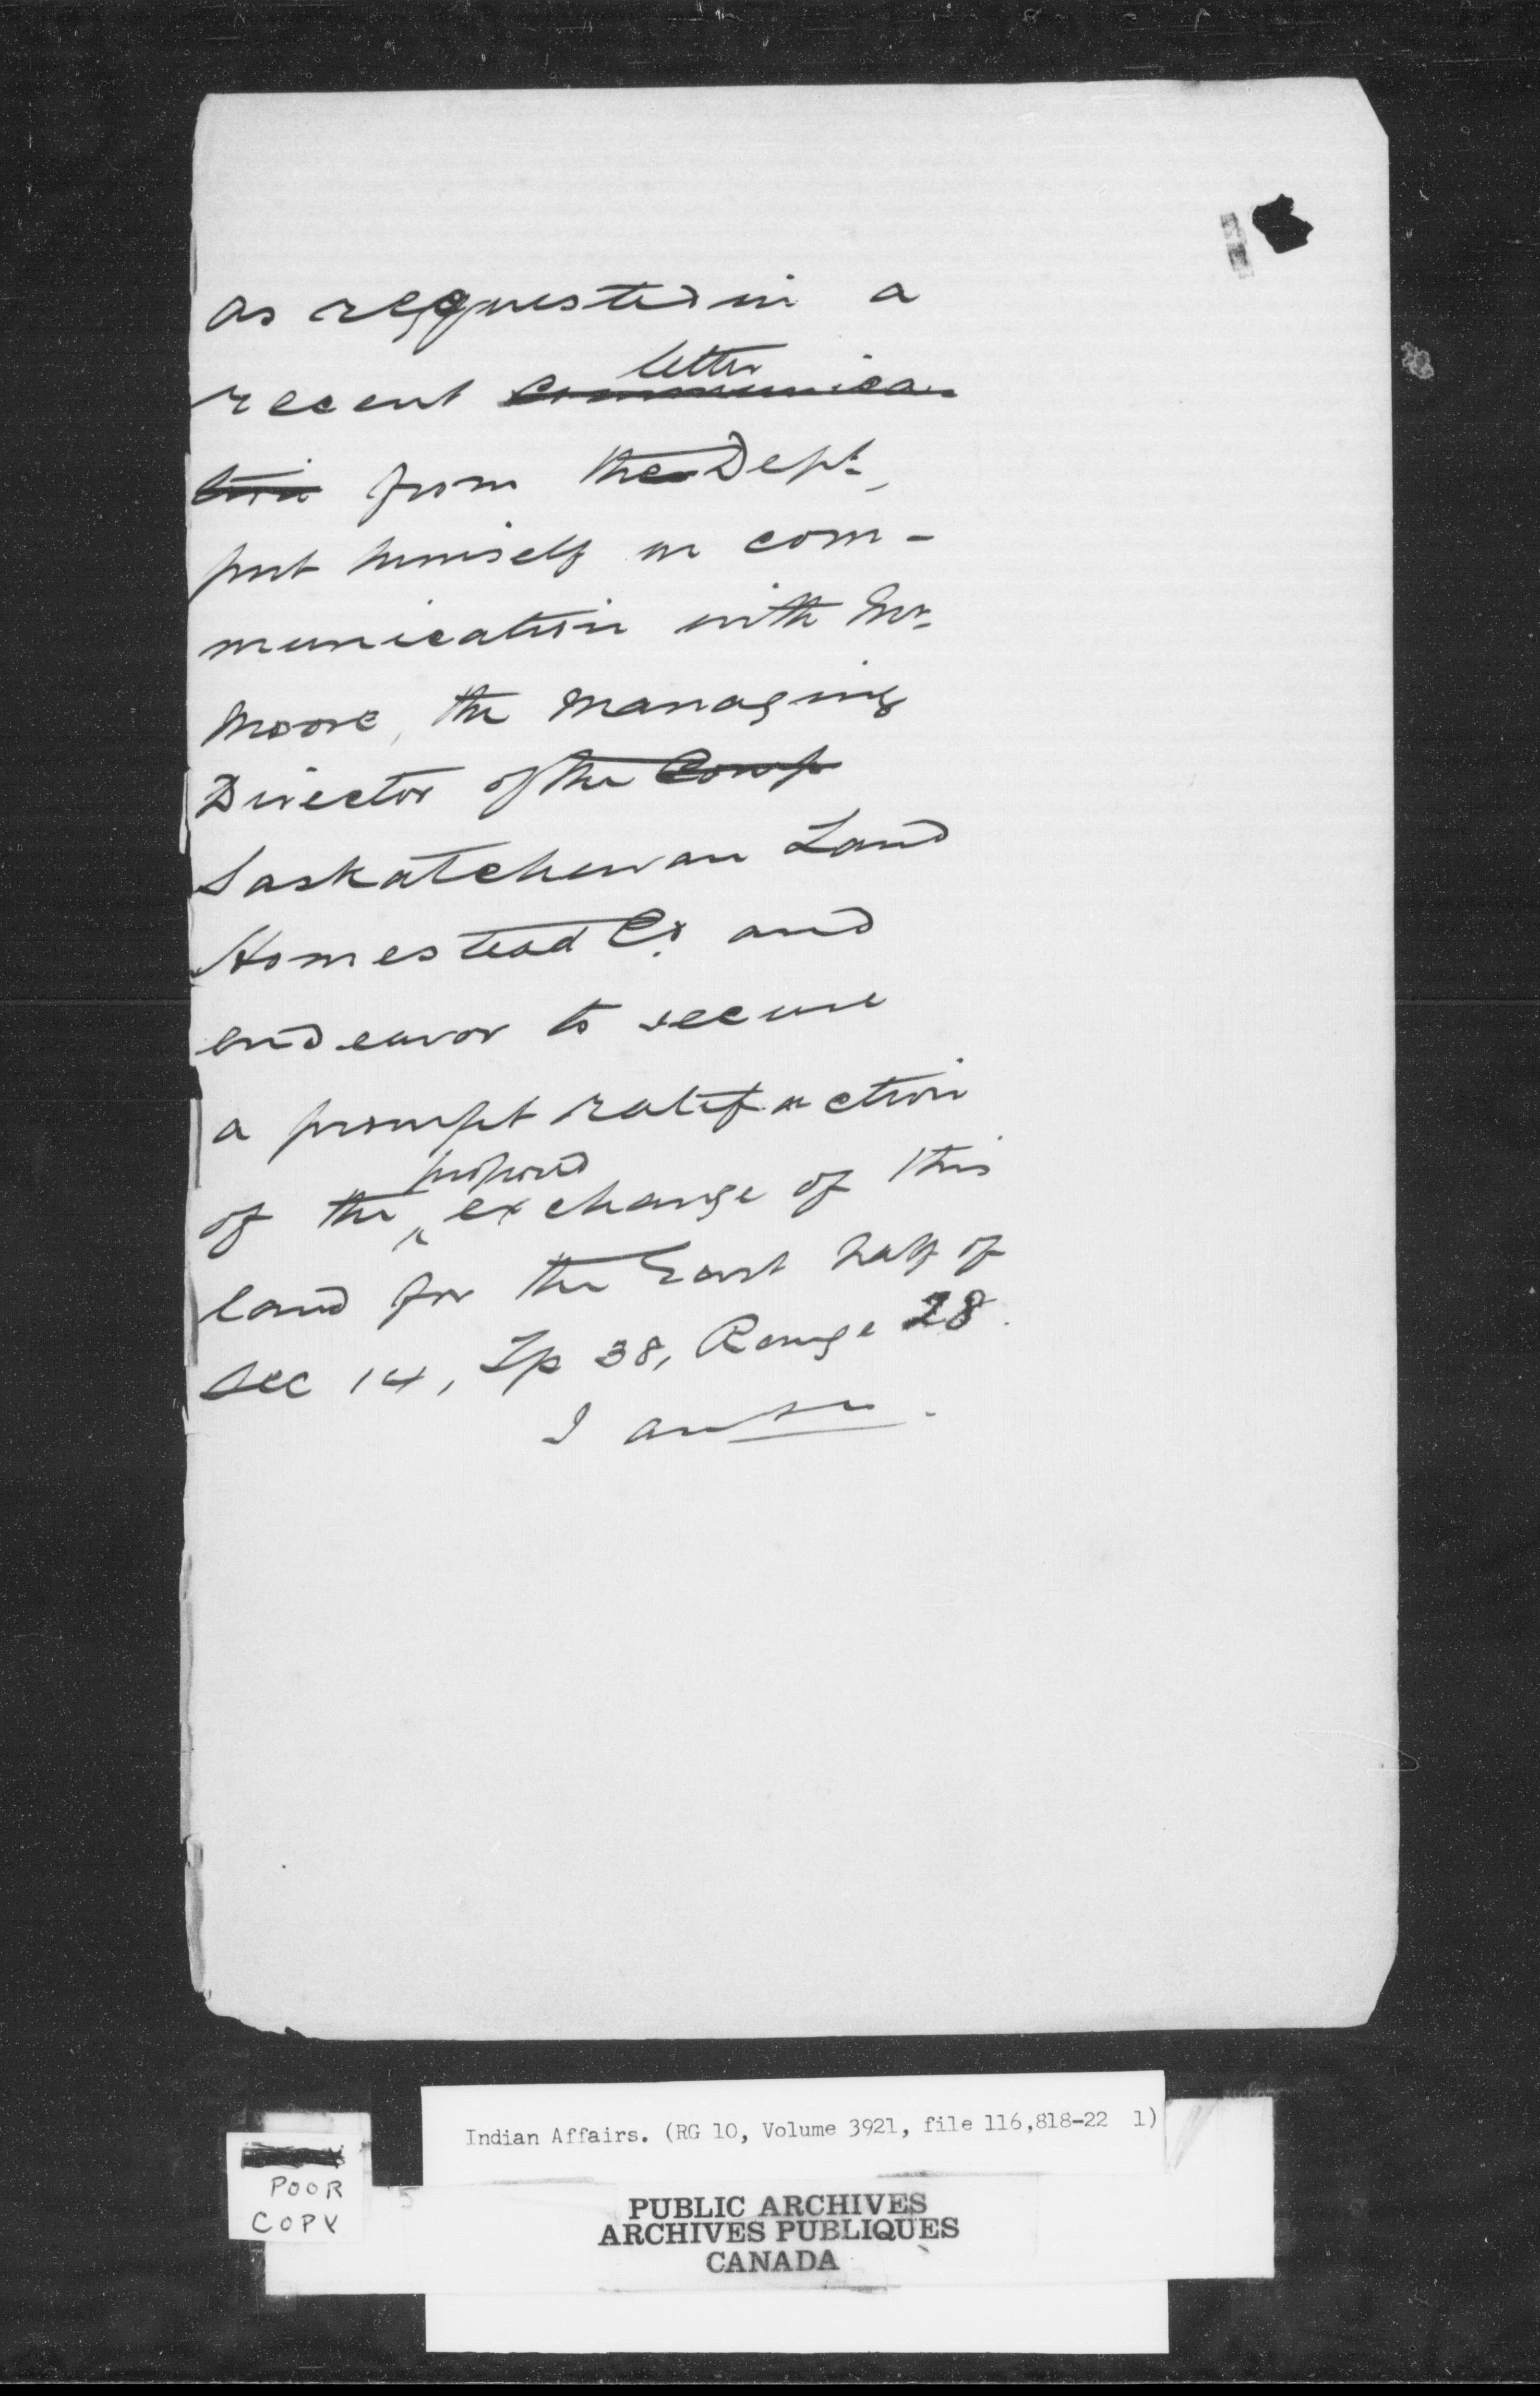 as requested in a
letter
recent communica-
tion from the Dept,
put himself in com-
munication with Mr.
Moore, the Managing
Director of the Comp
Saskatchewan Land
Homestead Co. and
endeavor to secure
a prompt ratifaction
proposed
of the ^ exchange of this
land for the East half of
Sec 14, Tp 38, Range 28.
I am
Indian Affairs. (RG 10, Volume 3921, file 116,818-22 1)
POOR
COPY
PUBLIC ARCHIVES
ARCHIVES PUBLIQUES
CANADA